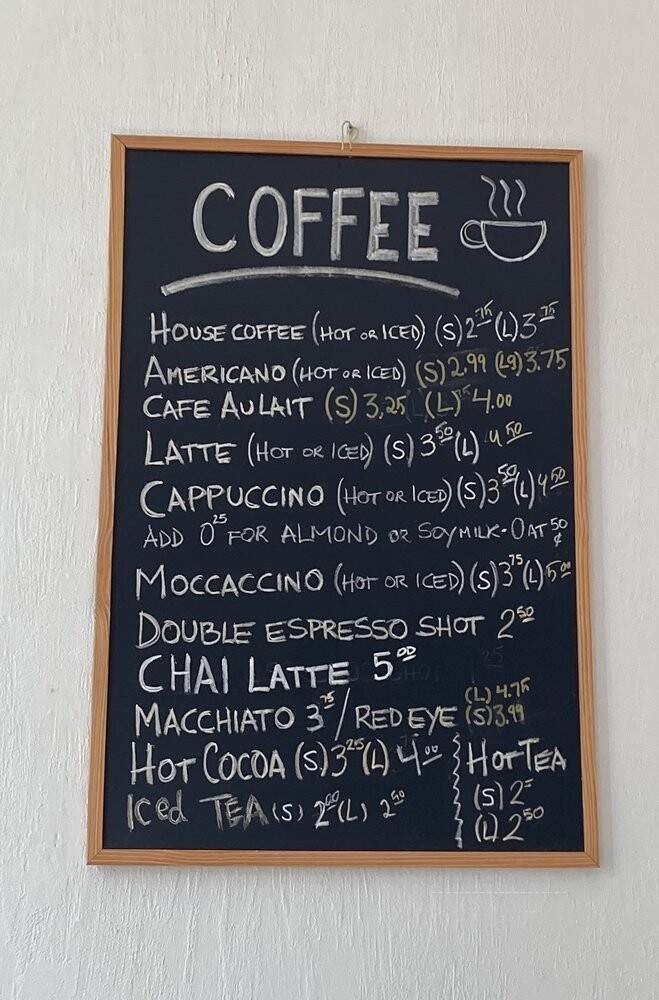 COFFEE
HOUSE COFFEE (HOT OR ICED) (S) 2.75 (L) 3.75
AMERICANO (HOT OR ICED) (S) 2.99 (LG) 3.75
CAFE AU LAIT (S) 3.25 (L) 4.00
LATTE (HOT OR ICED) (S) 3 50 (L) 4 50
CAPPUCCINO (HOT OR ICED) (S) 3 50 (L) 4 50
ADD 0 25 FOR ALMOND OR SOYMILK - OAT 50 ¢
MOCCACCINO (HOT OR ICED) (S) 3 75 (L) 5 00
DOUBLE ESPRESSO SHOT 2 50
CHAI LATTE 5 00
MACCHIATO 3 75 / RED EYE (L) 4.75 (S) 3.99
HOT COCOA (S) 3 25 (L) 4 00
Iced TEA (S) 2 00 (L) 2 50
HOT TEA
(S) 2
(L) 2 50